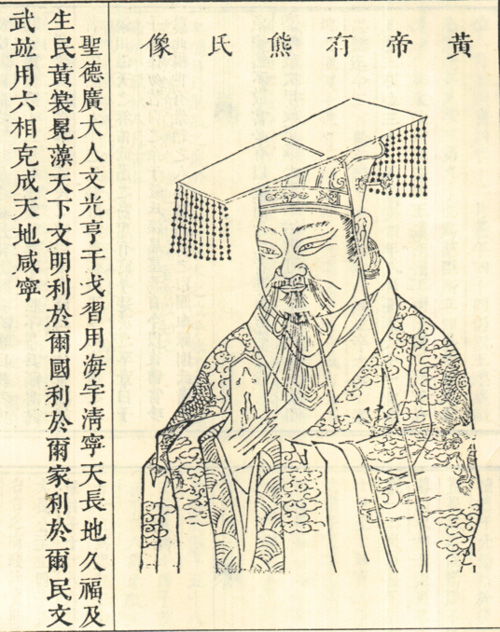 黃帝有熊氏像
聖德廣大人文光亨干戈習用海宇淸寧天長地久福及
生民黃裳冕藻天下文明利於爾國利於爾家利於爾民文
武竝用六相克成天地咸寧